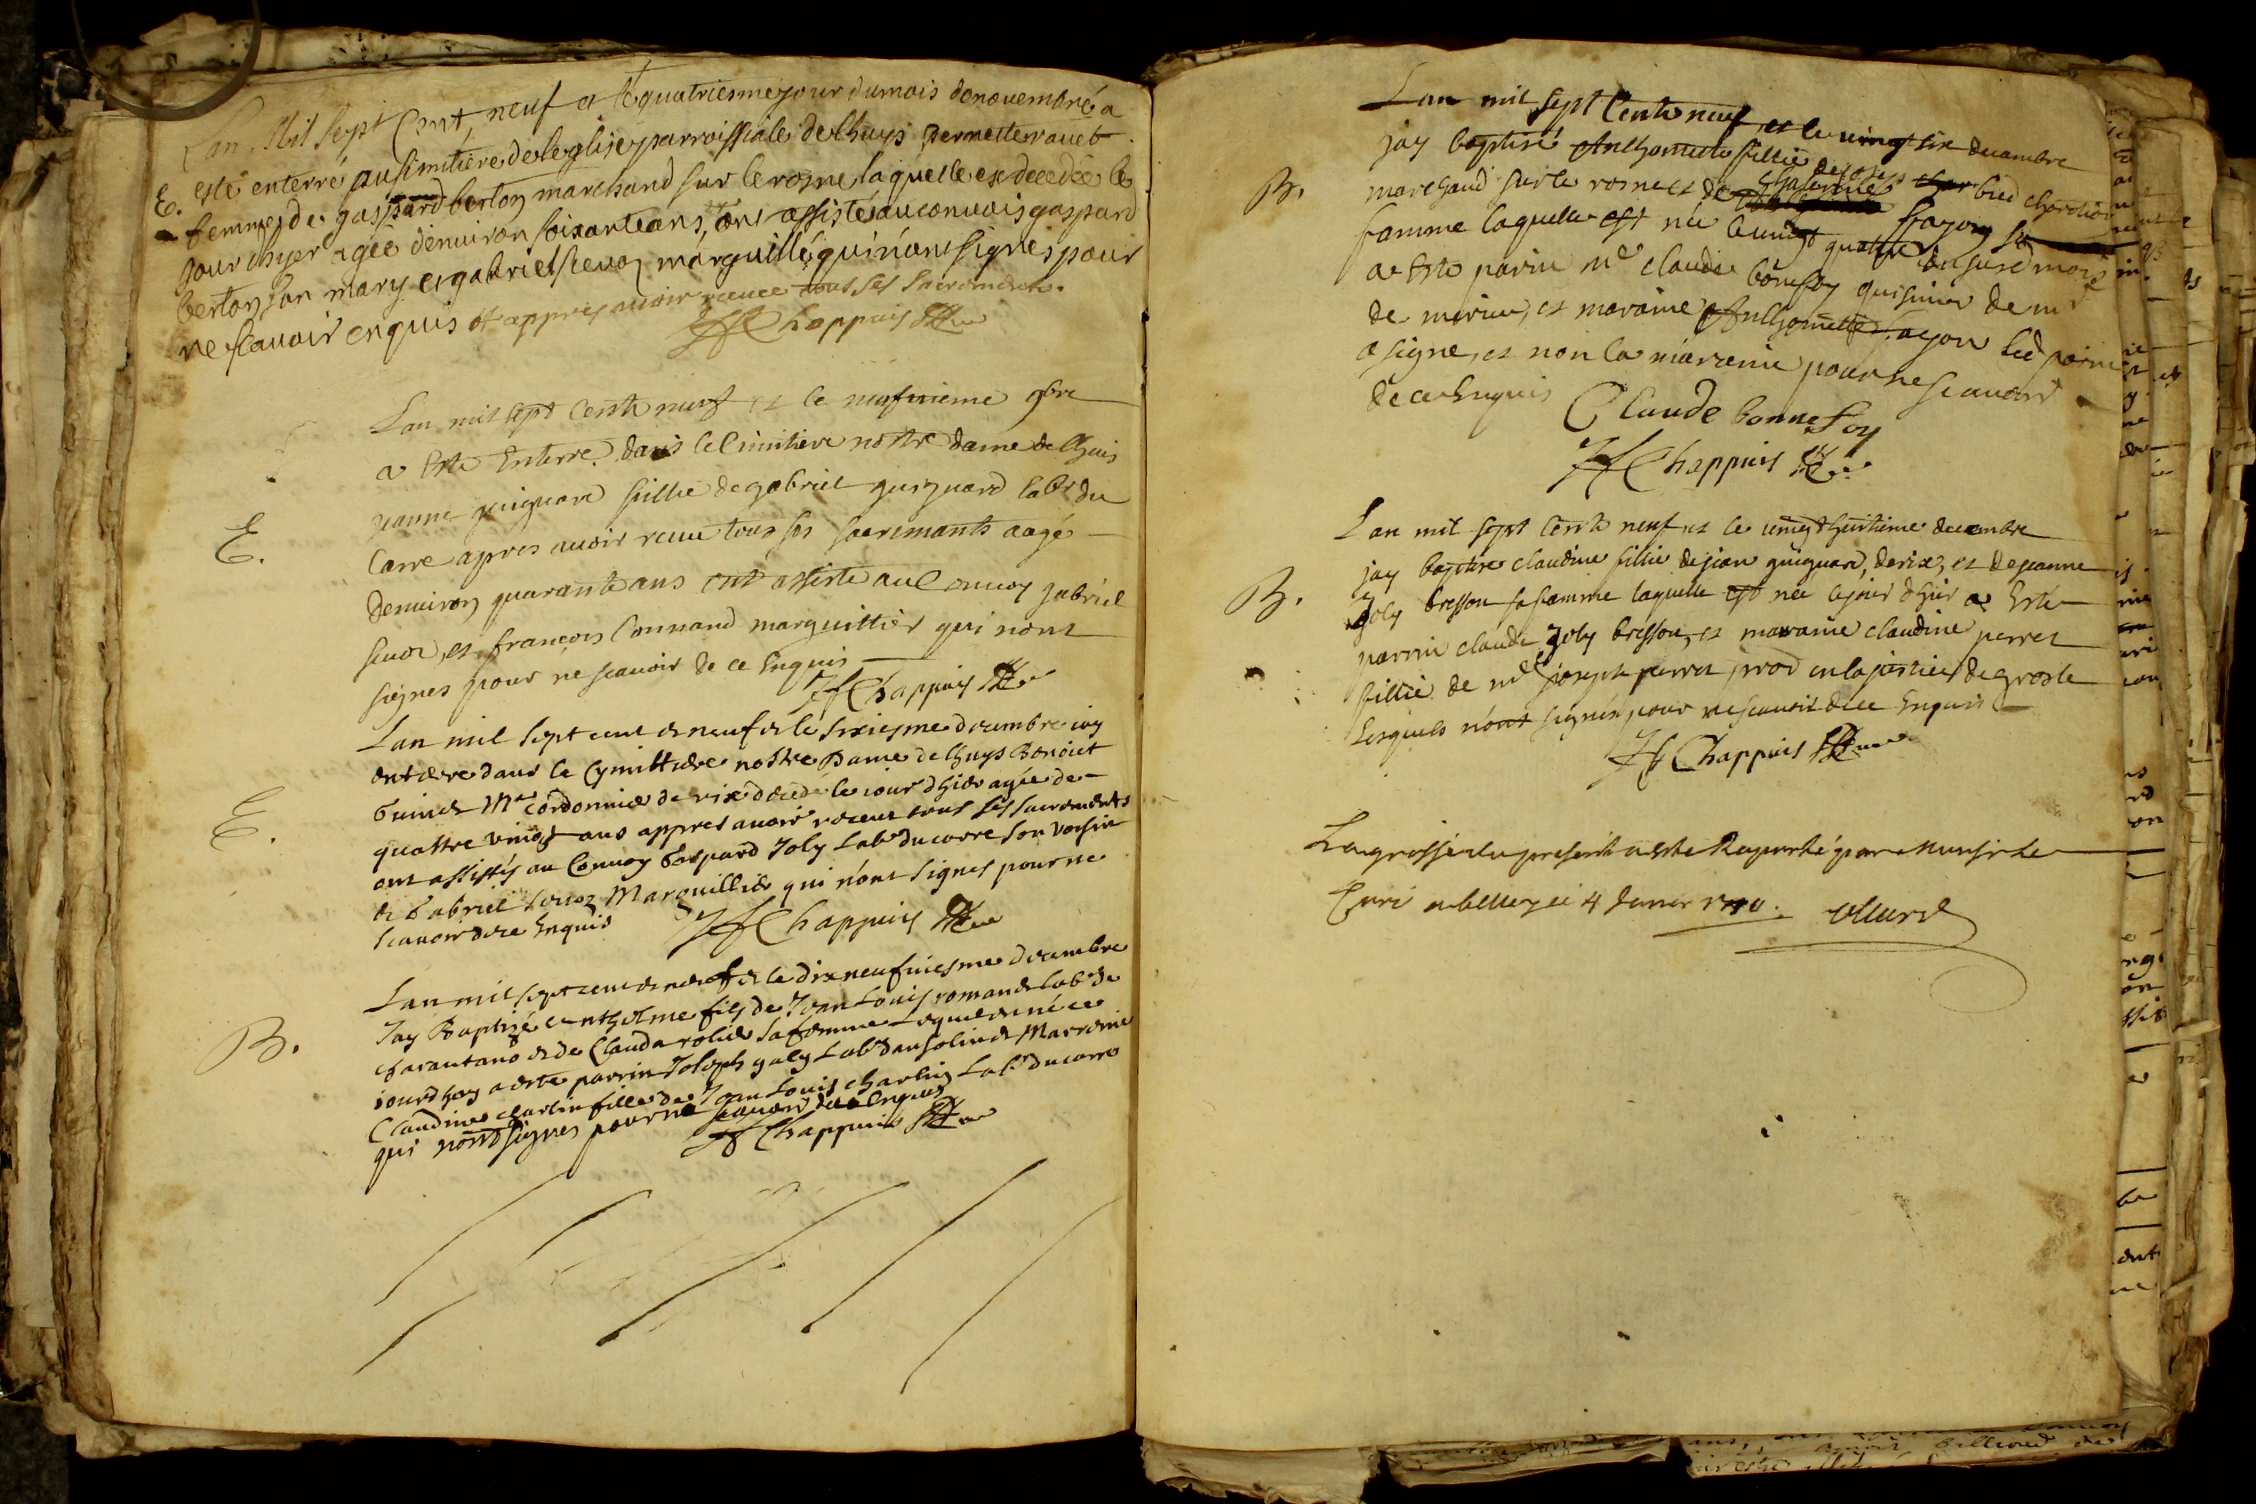 Lan Mil Sept Cent neuf et le quatriesme jour du mois de novembre a
E. esté enterré au simitiere de leglise parroissiale de lhuys
femme de gaspard berton marchand sur le rosne laquelle est decedée le
jour dhyer agée denuiron soixante ans, ont assisté au conuois gaspard
berton son mary et gabriel seuoz marguillé qui nont signes pour
ne scauoir enquis et appres auoir receue tous ses sacrements.
Chappuis
Lan mil sept cents neuf et le neufuieme 9bre
a este enterre dans le Cimitiere nostre dame de lhuis
E.
jeanne guiguard fillie de gabriel guiguard labr du
Carre apres auoir receu tous ses sacremants aagé
denuiron quarante ans ont assiste au Conuoy gabriel
seuoz, et francois Connand marguillier qui nont
signes pour ne scauoir de ce Enquis
Chappuis
Lan mil sept cent et neuf et le sixiesme decembre iay
enterre dans le Cymittiere nostre Dame de lhuys Benoict
E.
Guinet Mre Cordonnier de rix decedé le iour dhier agée de
quattre vingt ans appres auoir receu tous ses sacrements
ont assistés au Conuoy Gaspard Joly Labr du carre son voisin
et Gabriel Seuoz Marguillier qui nont signes pour ne
scauoir de ce Enquis
Chappuis
Lan mil sept cent et neuf et le dixneufuiesme decembre
Jay Baptizé Anthelme fils de Jean Louis romand labr de
B.
et de Clauda rolier sa femme lequel est né ce
iourdhuy a este parrin Joseph galy Labr et Marrenie
Claudine charlin fille de Jean Louis charlin Labr du carre
qui nont signes pour ne scauoir de ce Enquis
Chappuis
Lan mil sept Cents neuf et le vingt six decembre
jay baptisé Anthoinette fillie de
B.
marchand sur le rosne et de
famme laquelle est née le vingt quatre du susd mois
a Este parin mre claude bonefoy quisinier de mr
de merieu, et maraine Anthoinette fayon led parin
a signe, et non la maraine pour ne scauoir
de ce Enquis
Claude bonnefoy
Chappuis
Lan mil sept cents neuf et le vingt huitieme decembre
jay baptise claudine fillie de jean guiguard, de rix, et de jeanne
B.
Joly bresson sa famme laquelle est née le jour dhier a Esté
parrin claude Joly bresson, et maraine claudine perret
fillie de mre joseph perret prod en la justice de grosle
lesquels nont signés pour ne scauoir de ce Enquis
Chappuis
La grosse du present a este Raporté par Monsr le
Curé a belley ce 4 Janvier 1710.